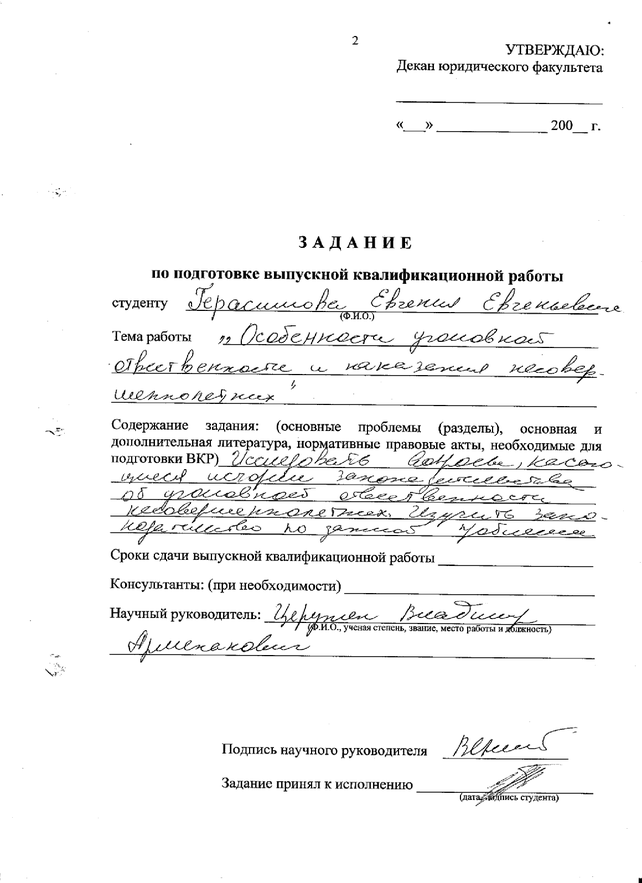 2
УТВЕРЖДАЮ:
Декан юридического факультета
«___» ________________ 200__ г.
ЗАДАНИЕ
по подготовке выпускной квалификационной работы
студенту Герасимова Евгения Евгеньевича
(Ф.И.О.)
Тема работы „Особенности уголовной
ответственности и наказания несовер-
шеннолетних"
Содержание задания: (основные проблемы (разделы), основная и
дополнительная литература, нормативные правовые акты, необходимые для
подготовки ВКР) Исследовать вопросы, касаю-
щиеся истории законодательства
об уголовной ответственности
несовершеннолетних. Изучить зако-
нодательство по данной проблеме
Сроки сдачи выпускной квалификационной работы
Консультанты: (при необходимости)
Научный руководитель: Владимир
(Ф.И.О., ученая степень, звание, место работы и должность)
Подпись научного руководителя
Задание принял к исполнению
(дата, подпись студента)